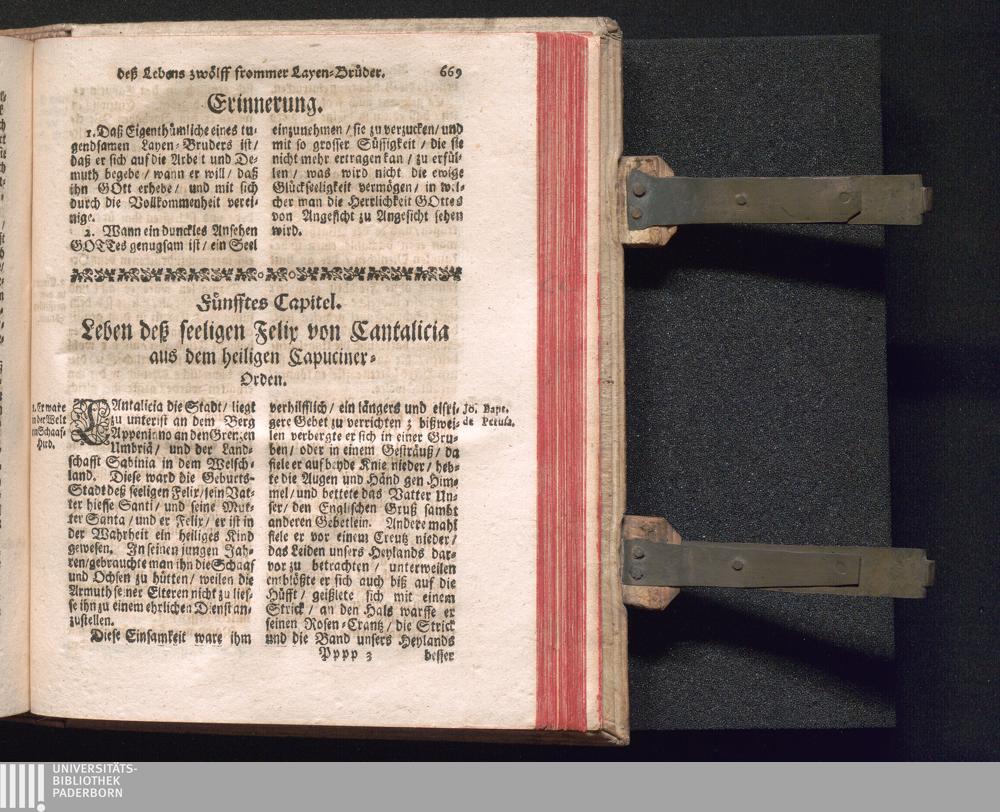 deß Lebens zwölff frommer Layen-Brüder. 669
Erinnerung.
1. Daß Eigenthümliche eines tu-
gendsamen Layen-Bruders ist/
daß er sich auf die Arbeit und De-
muth begebe/ wann er will/ daß
ihn GOtt erhebe/ und mit sich
durch die Vollkommenheit verei-
nige.
2. Wann ein dunckles Ansehen
GOTTes genugsam ist/ ein Seel
einzunehmen/ sie zu verzucken/ und
mit so grosser Süssigkeit/ die sie
nicht mehr ertragen kan/ zu erfül-
len/ was wird nicht die ewige
Glückseeligkeit vermögen/ in wel-
cher man die Herrlichkeit GOttes
von Angesicht zu Angesicht sehen
wird.
Fünfftes Capitel.
Leben deß seeligen Felix von Cantalicia
aus dem heiligen Capuciner-
Orden.
1. Er ware
in der Welt
ein Schaaf-
Hird.
CAntalicia die Stadt/ liegt
zu unterist an dem Berg
Appenino an den Grenzen
Umbriä/ und der Land-
schafft Sabinia in dem Welsch-
land. Diese ward die Geburts-
Stadt deß seeligen Felix/ sein Vat-
ter hiesse Santi/ und seine Mut-
ter Santa/ und er Felix/ er ist in
der Wahrheit ein heiliges Kind
gewesen. In seinen jungen Jah-
ren/ gebrauchte man ihn die Schaaf
und Ochsen zu hütten/ weilen die
Armuth seiner Elteren nicht zu lies-
se ihn zu einem ehrlichen Dienst an-
zustellen.
Diese Einsamkeit ware ihm
verhilfflich/ ein längers und eifri-
gere Gebet zu verrichten; bißwei-
len verbergte er sich in einer Gru-
ben/ oder in einem Gesträuß/ da
fiele er auf beyde Knie nieder/ heb-
te die Augen und Händ gen Him-
mel/ und bettete das Vatter Un-
ser/ den Englischen Gruß sambt
anderen Gebetlein. Andere mahl
fiele er vor einem Creutz nieder/
das Leiden unsers Heylands dar-
vor zu betrachten/ unterweilen
entblößte er sich auch biß auf die
Hüfft/ geißlete sich mit einem
Strick/ an den Hals warffe er
seinen Rosen-Crantz/ die Strick
und die Band unsers Heylands
Jo. Bapt.
de Perusa.
Pppp 3 besser
UNIVERSITÄTS-
BIBLIOTHEK
PADERBORN